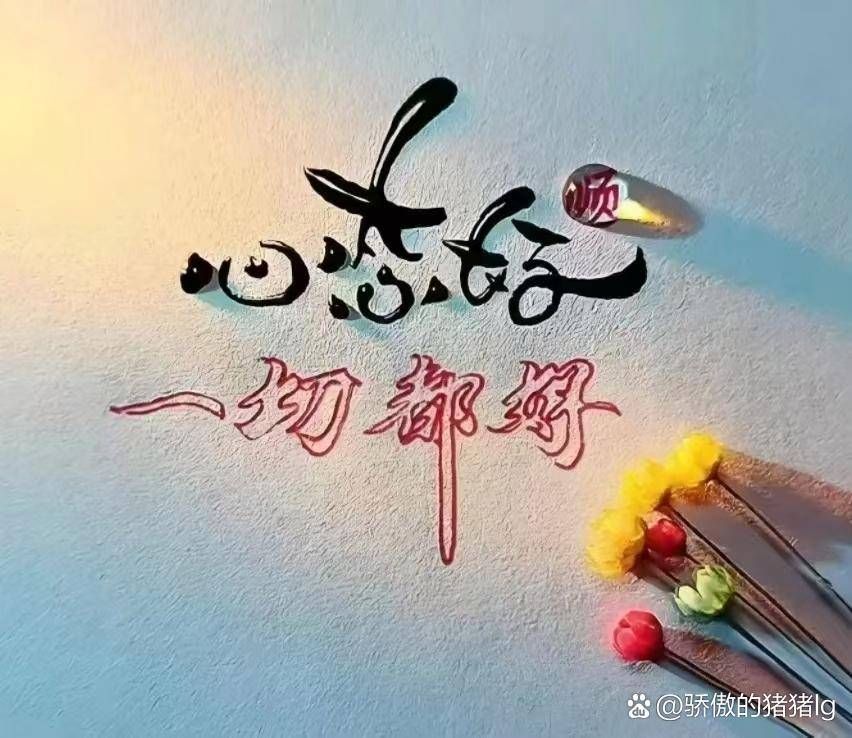 顺
心态好
一切都好
du @骄傲的猪猪lg